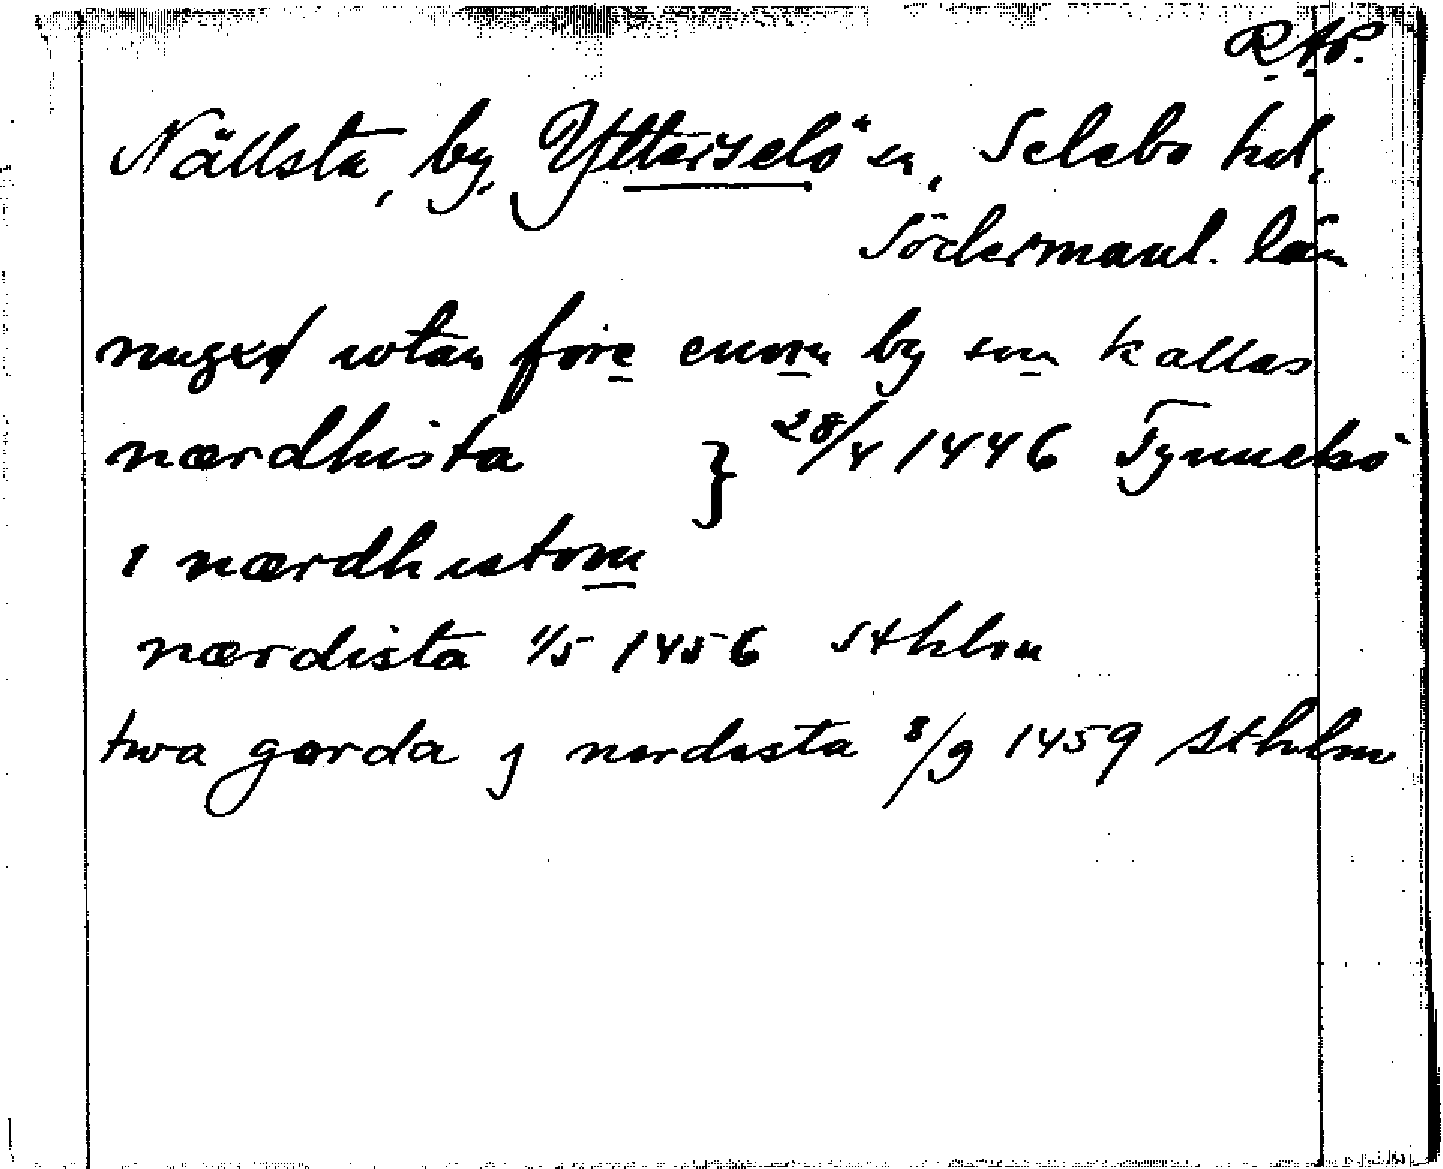 R.A.P.
Nällsta, by, Ytterselö sn, Selebo hd,
Södermanl. län
wtan före enom by som kallas
nærdhista } 28/4 1446 Tynnelsö
i nærdhistom
nærdista 1/5 1456 Sthlm
twa garda j nerdesta 8/9 1459 Sthlm